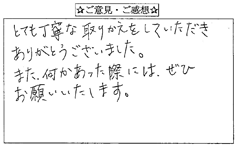 ☆ご意見・ご感想☆
とても丁寧な取りかえをしていただき
ありがとうございました。
また、何かあった際には、ぜひ
お願いいたします。